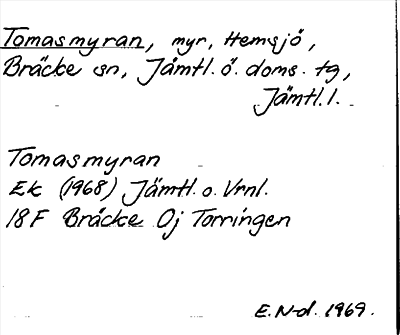 Tomasmyran, myr, Hemsjö,
Bräcke sn, Jämtl. ö. doms. tg,
Jämtl. l.
Tomasmyran
Ek (1968) Jämtl. o. Vrnl.
18 F Bräcke Oj Torringen
E. N-d. 1969.